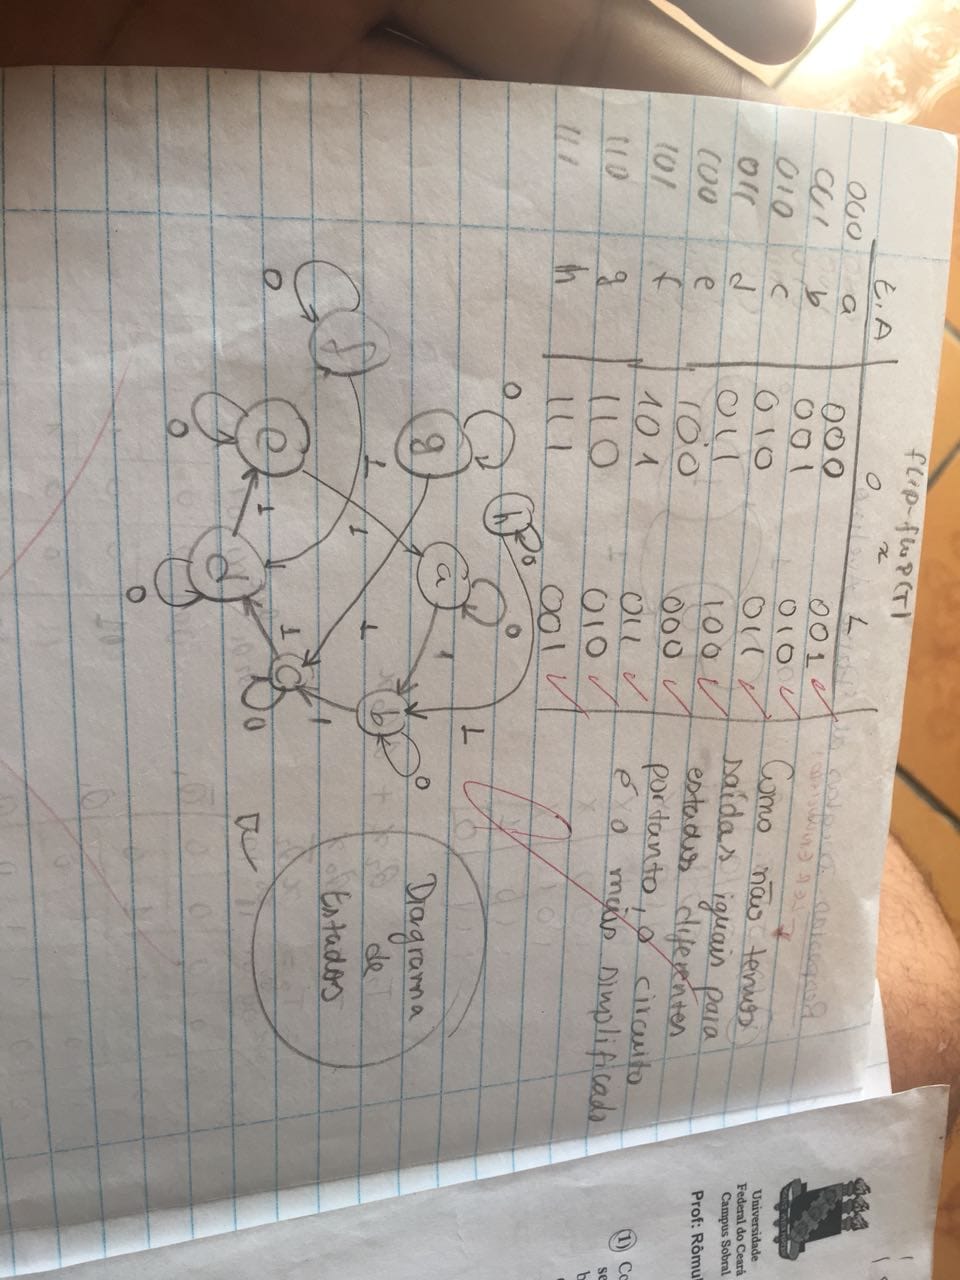 flip-flop(T)
E.A 0 x 1
000 a 000 001
001 b 001 010
010 c 010 011
011 d 011 100
100 e 100 000
101 f 101 011
110 g 110 010
111 h 111 001
Como não temos
saídas iguais para
estados diferentes
portanto, o circuito
é o mais simplificado
Diagrama
de
Estados
0
g
h
0
a
0
1
1
b
0
1
c
0
1
d
0
1
e
0
1
f
0
1
1
Universidade
Federal do Ceará
Campus Sobral
Prof: Rômul
(1) Co
se
b